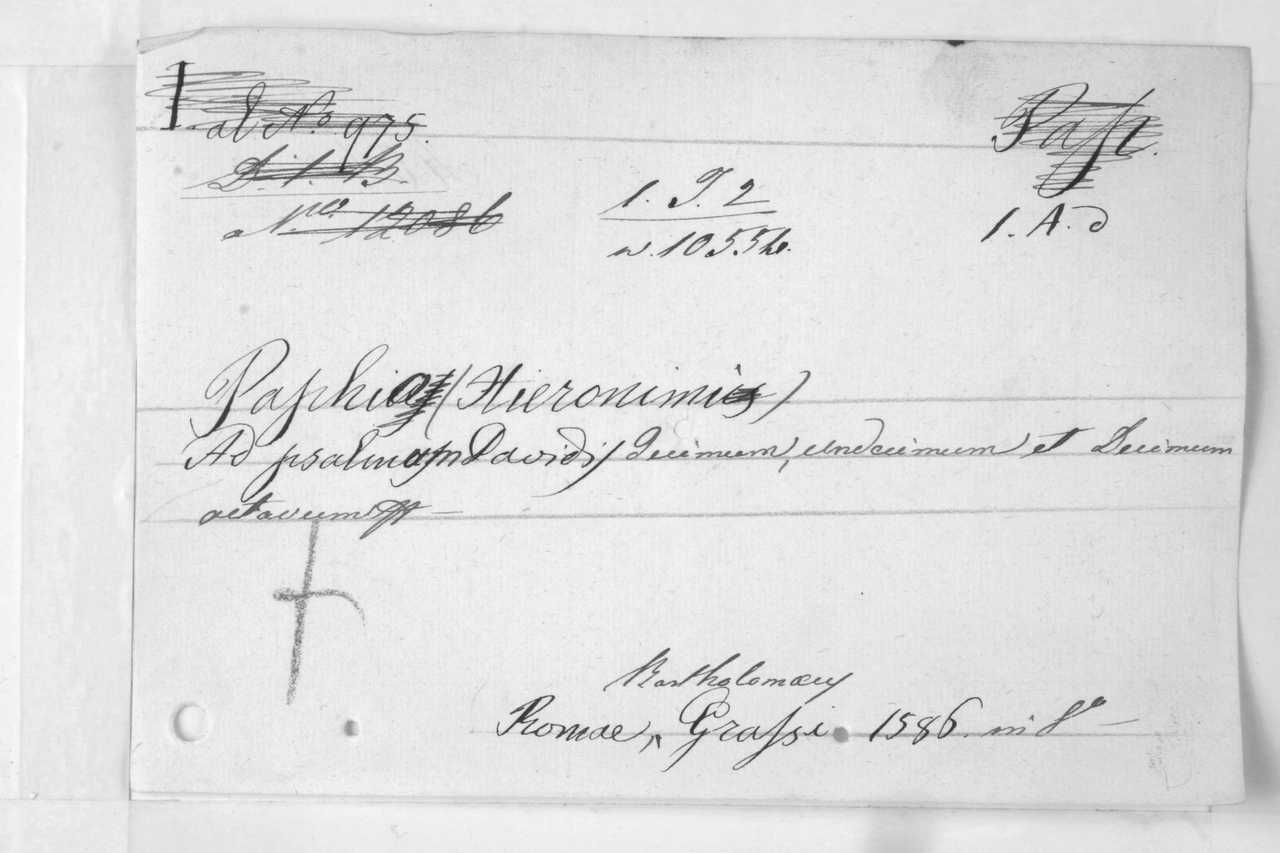 ad No. 975.
D. 1. B.
No. 12086
1. J. 2
n. 1055 h.
Passi.
1. A. d
Paschi (Hieronimi)
Ad psalmum Davidis decimum, undecimum et Decimum
octavum
Bartholomæus
Romae, Grassi 1586. in 8o